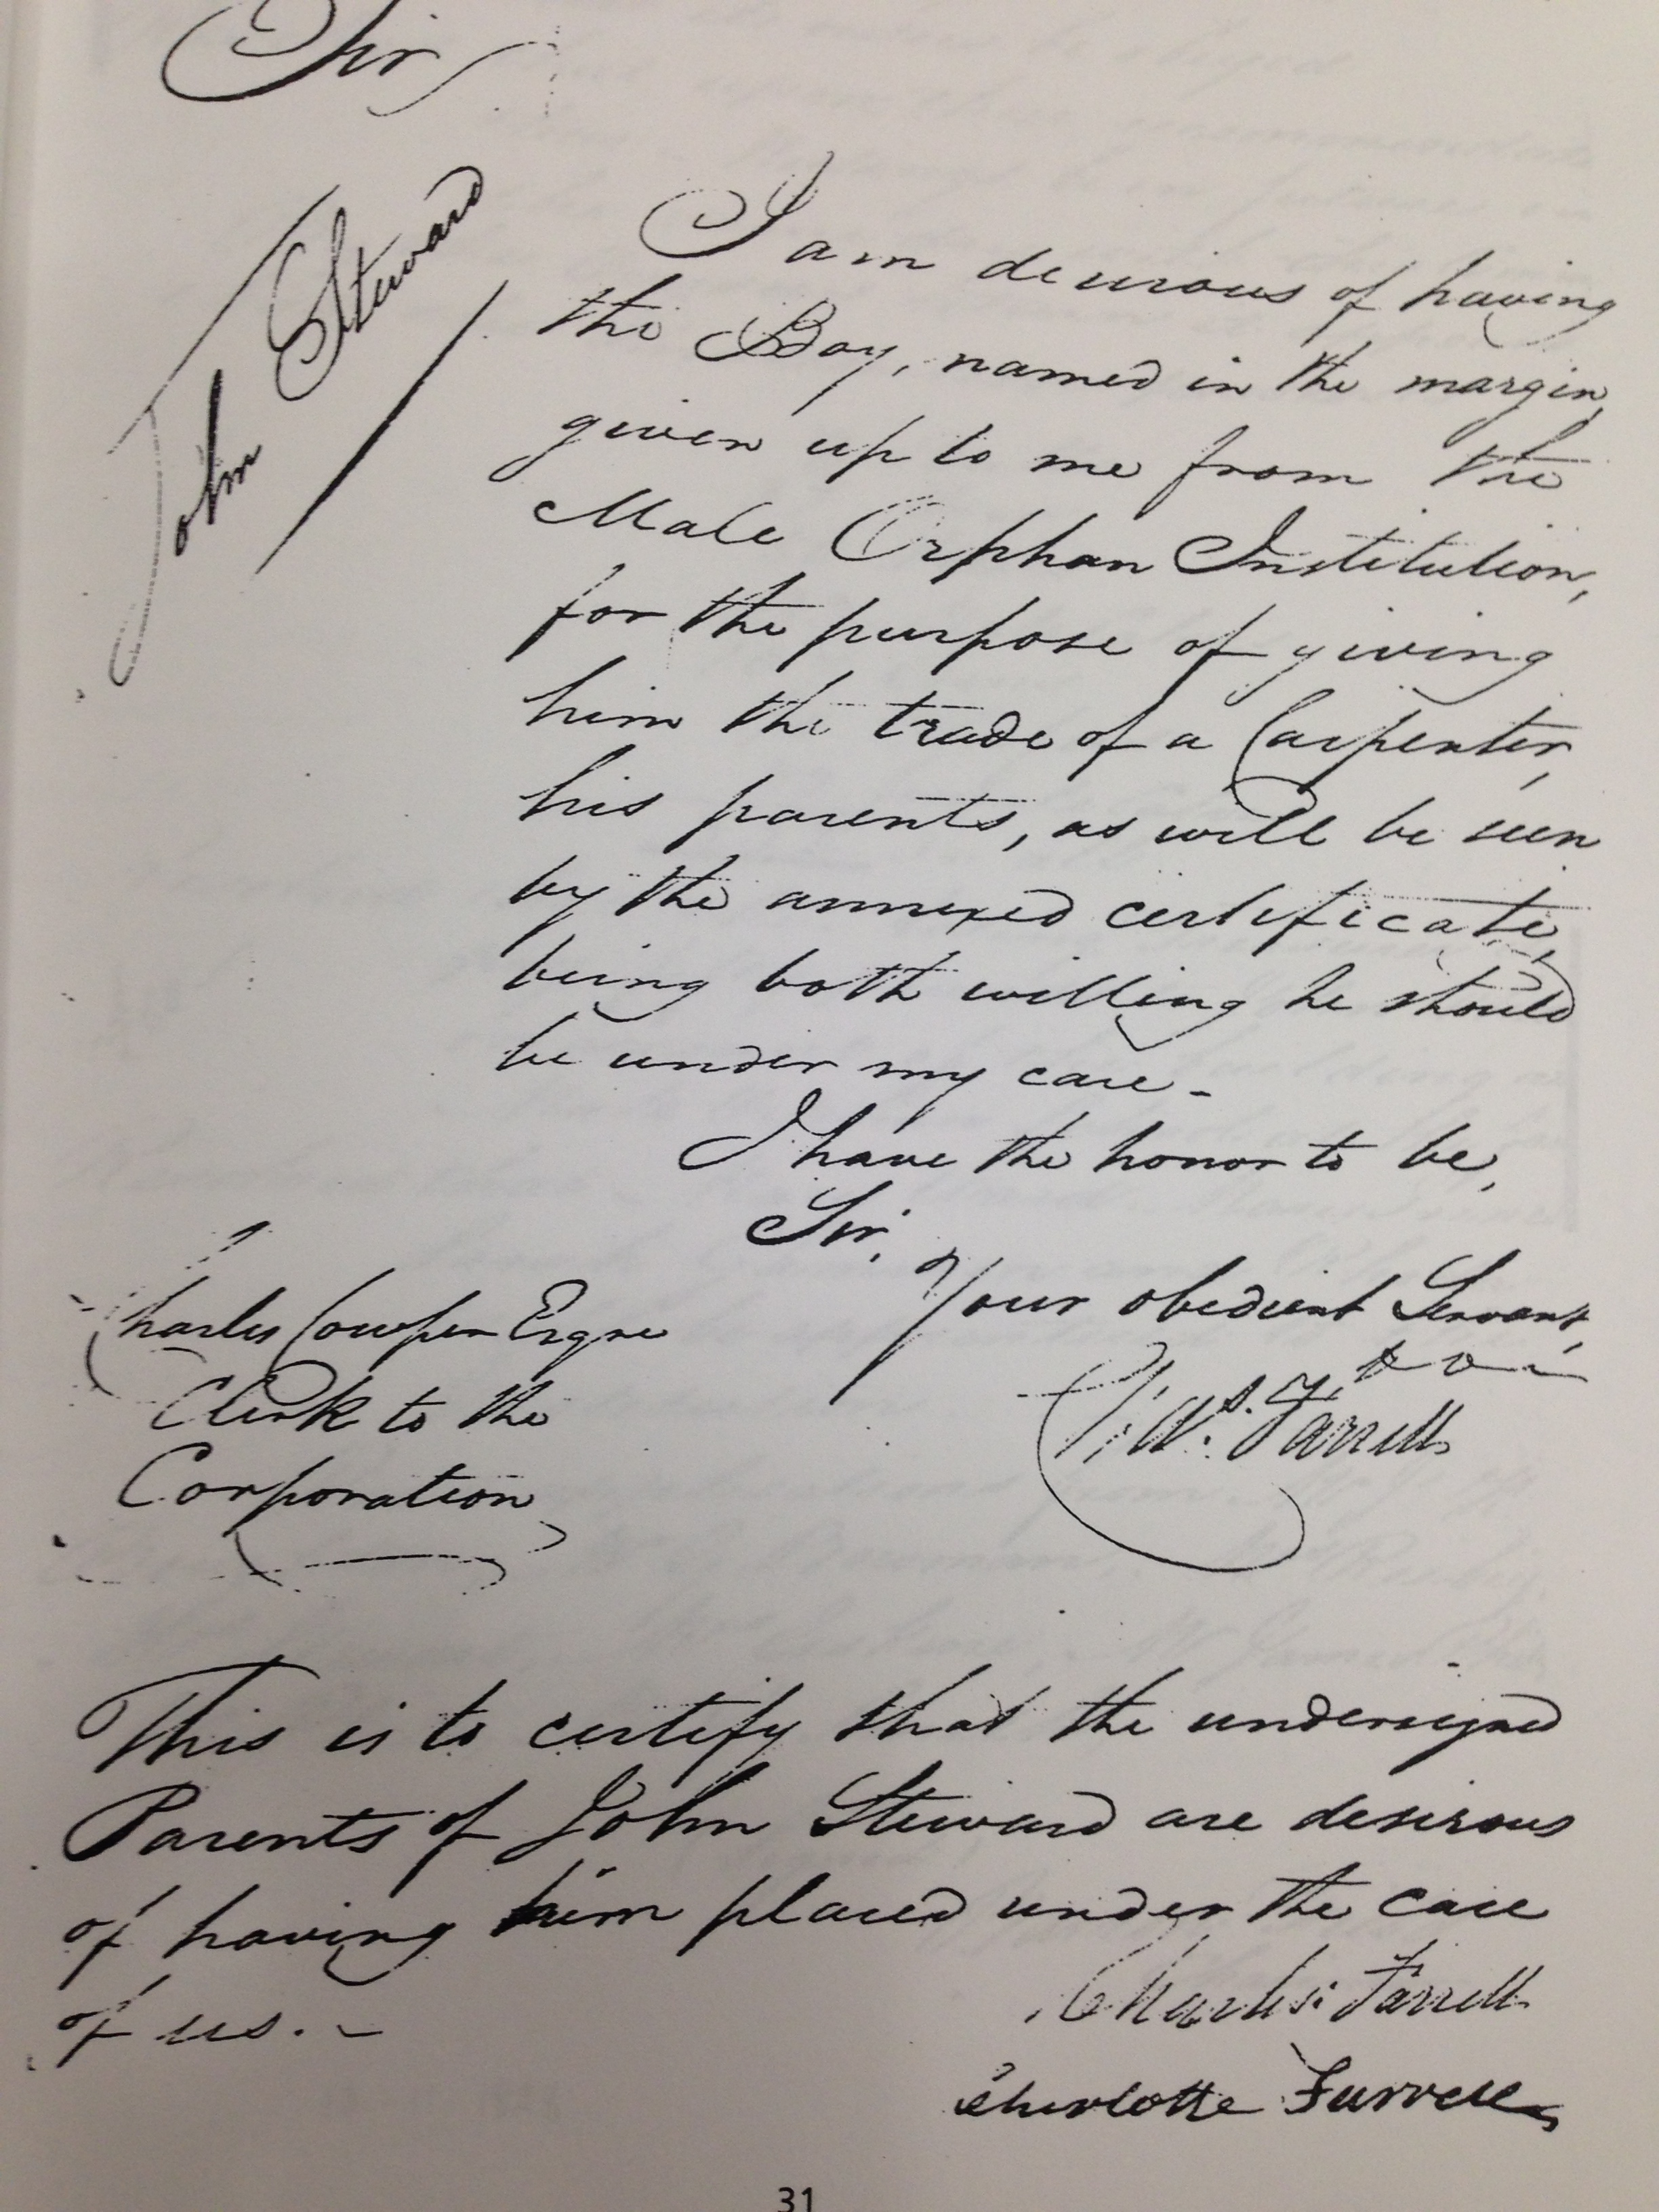 Sir
John Steward
I am desirous of having
the Boy, named in the margin,
given up to me from the
Male Orphan Institution,
for the purpose of giving
him the trade of a Carpenter,
his parents, as will be seen
by the annexed certificate,
being both willing he should
be under my care -
I have the honor to be,
Sir,
Your obedient Servant,
Farrell
Charles Cowper Esqre
Clerk to the
Corporation
This is to certify that the undersigned
Parents of John Steward are desirous
of having him placed under the care
of us. -
Charles Farrell
Charlotte Farrell
31